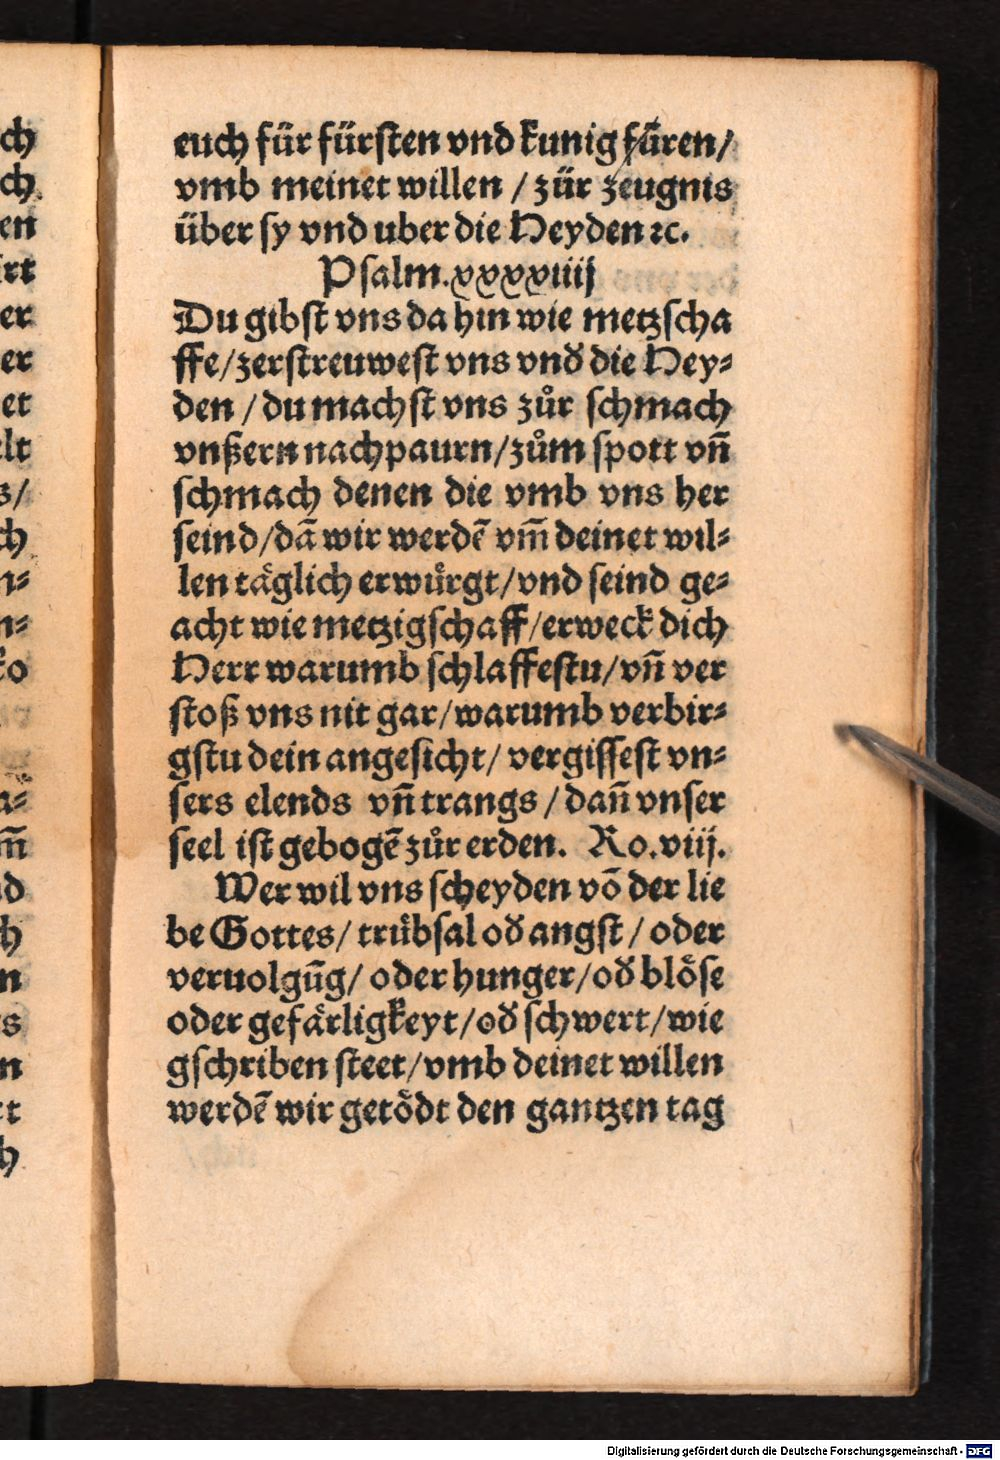 euch für fürsten vnd kunig füren/
vmb meinet willen / zür zeugnis
über sy vnd uber die Heyden ꝛc.
Psalm.xxxxiiij
Du gibst vns da hin wie metzscha
ffe/zerstreuwest vns vnd̛ die Hey⸗
den / du machst vns zuͦr schmach
vnßern nachpaurn/zuͦm spott vn̄
schmach denen die vmb vns her
seind/dā wir werdē vm̄ deinet wil⸗
len taͤglich erwuͤrgt/vnd seind ge⸗
acht wie metzigschaff/erweck dich
Herr warumb schlaffestu/vn̄ ver
stoß vns nit gar/warumb verbir⸗
gstu dein angesicht/ vergissest vn⸗
sers elends vn̄ trangs / dan̄ vnser
seel ist gebogē zuͦr erden. Ro.viij.
Wer wil vns scheyden vō der lie
be Gottes/ truͤbsal od̛ angst / oder
veruolgūg/ oder hunger/od̛ bloͤse
oder gefaͤrligkeyt/od̛ schwert/wie
gschriben steet/vmb deinet willen
werdē wir getoͤdt den gantzen tag
ch
ch
en
irt
er
er
et
lt
s/
ch
n⸗
n⸗
ko
a⸗
m̄
d
h
n
s
n
t
h
Digitalisierung gefördert durch die Deutsche Forschungsgemeinschaft - DFG